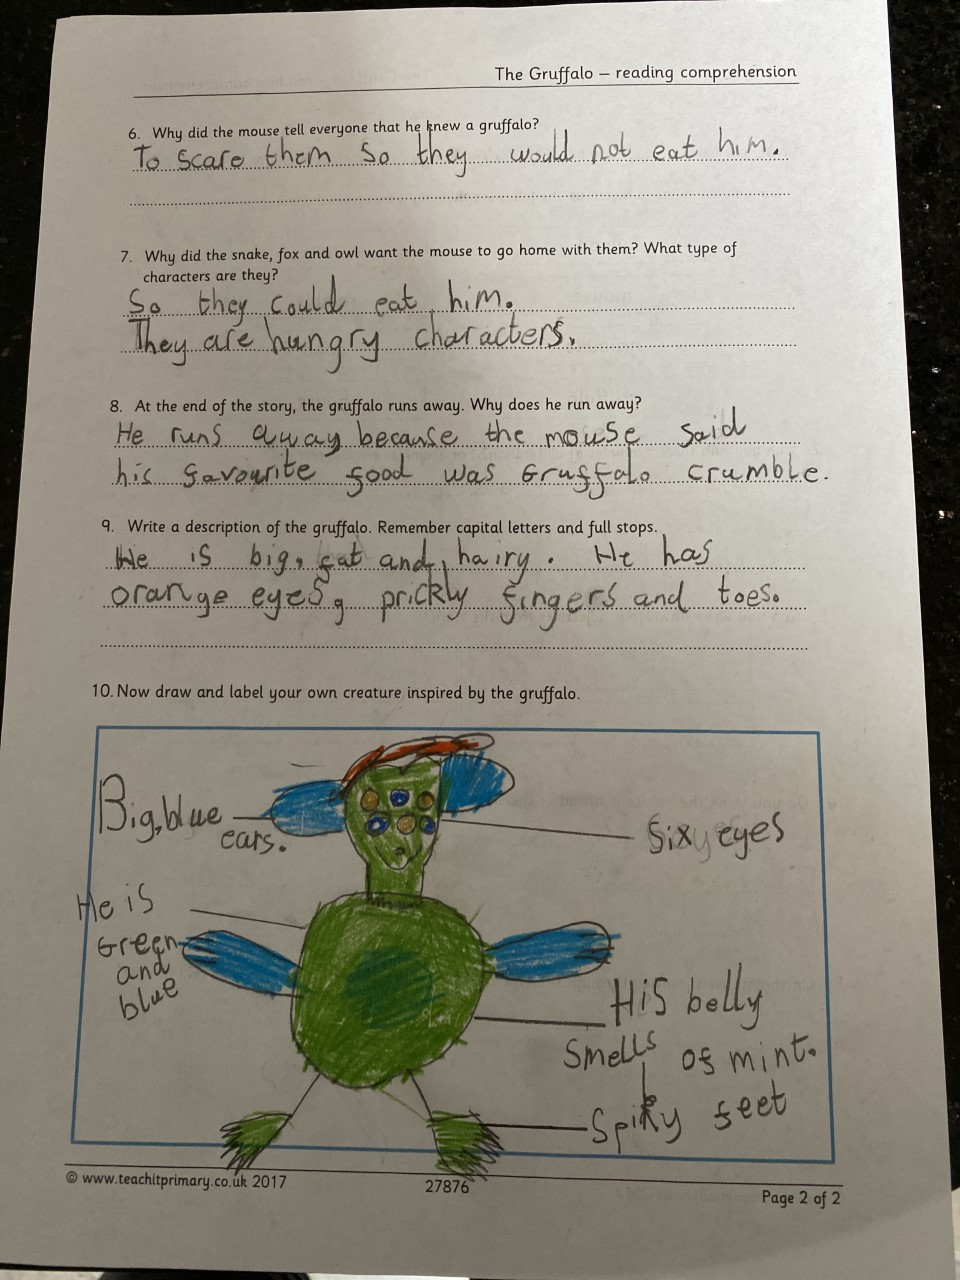 The Gruffalo – reading comprehension
6. Why did the mouse tell everyone that he knew a gruffalo?
To scare them so they would not eat him.
7. Why did the snake, fox and owl want the mouse to go home with them? What type of
characters are they?
So they could eat him.
They are hungry characters.
8. At the end of the story, the gruffalo runs away. Why does he run away?
He runs away because the mouse said
his favourite food was Gruffalo crumble.
9. Write a description of the gruffalo. Remember capital letters and full stops.
He is big, fat and hairy. He has
orange eyes, prickly fingers and toes.
10. Now draw and label your own creature inspired by the gruffalo.
Big, blue
ears.
Six eyes
He is
Green
and
blue
His belly
smells of mint.
Spiky feet
© www.teachitprimary.co.uk 2017
27876
Page 2 of 2